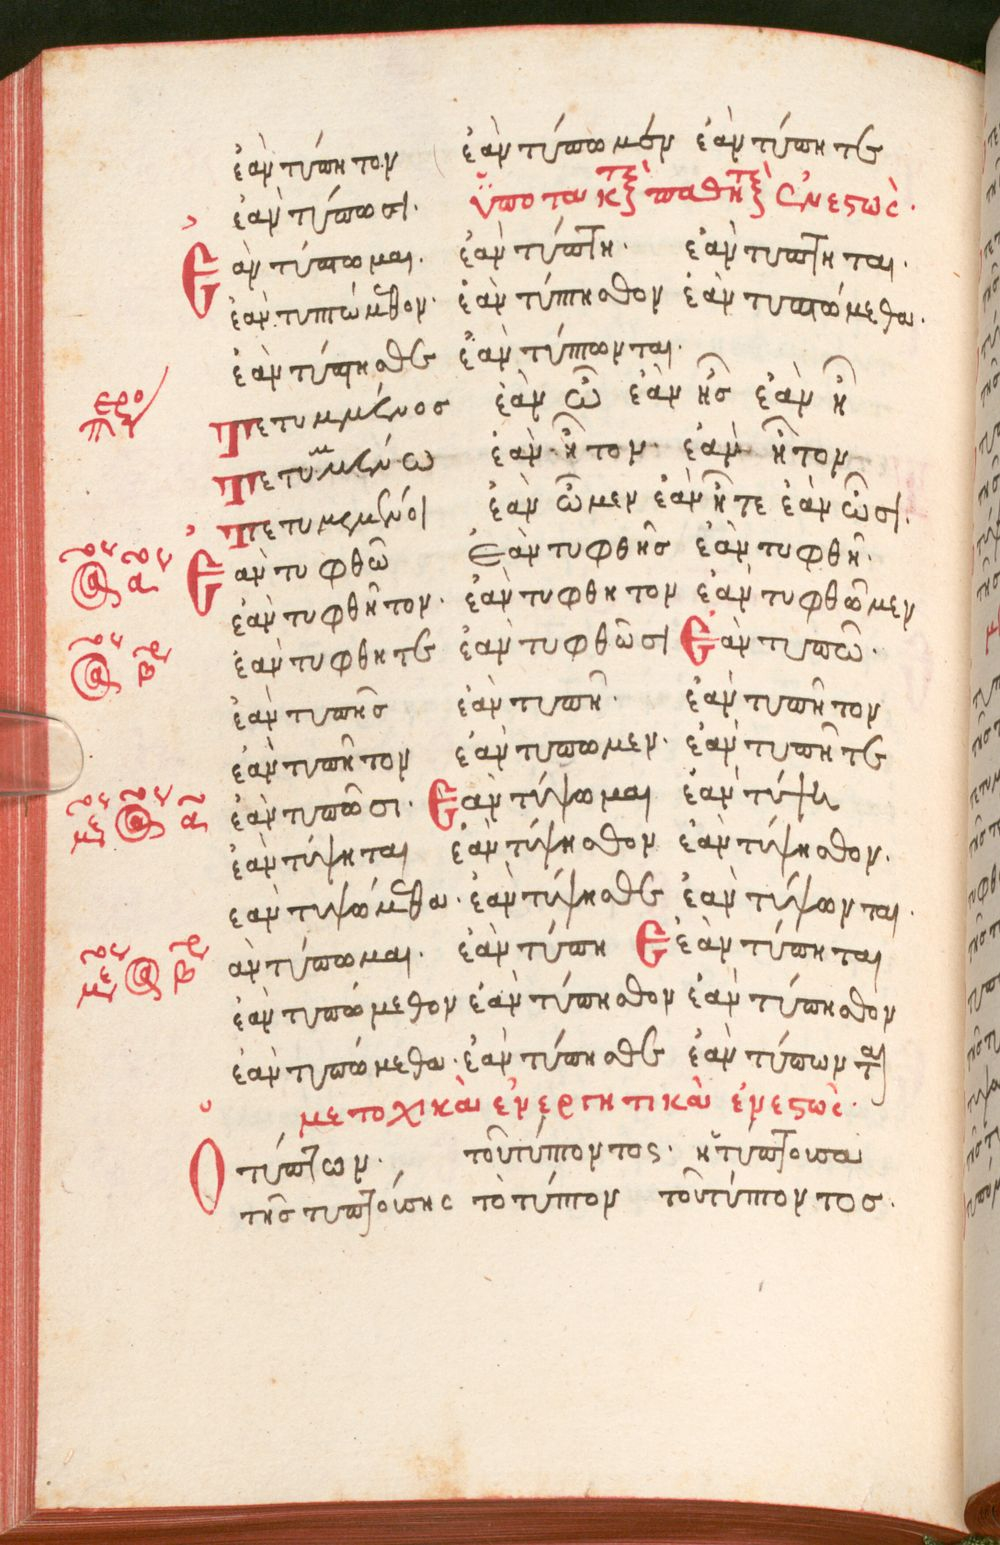 ἐὰν τύπητον ἐὰν τύπωμεν ἐὰν τύπητε
ἐὰν τύπωσι. ὑποτακτικὰ παθητικὰ ἐνεστῶτος.
Ἐὰν τύπτωμαι. ἐὰν τύπτῃ. ἐὰν τύπτηται.
ἐὰν τυπτώμεθον. ἐὰν τύπτησθον ἐὰν τυπτώμεθα.
ἐὰν τύπτησθε ἐὰν τύπτωνται.
Τετυμμένος ἐὰν ὦ ἐὰν ἦς ἐὰν ἦ
Τετυμμένω ἐὰν ἦτον. ἐὰν ἦτον
Τετυμμένοι ἐὰν ὦμεν ἐὰν ἦτε ἐὰν ὦσι.
Ἐὰν τυφθῶ Ἐὰν τυφθῆς ἐὰν τυφθῆ.
ἐὰν τυφθῆτον. ἐὰν τυφθητον ἐὰν τυφθῶμεν
ἐὰν τυφθητε ἐὰν τυφθῶσι Ἐὰν τυπῶ.
ἐὰν τυπῆς ἐὰν τυπῆ. ἐὰν τυπῆτον
ἐὰν τυπῆτον ἐὰν τυπωμεν. ἐὰν τυπῆτε
ἐὰν τυπῶσι. Ἐὰν τύψωμαι ἐὰν τύψη
ἐὰν τύψηται ἐὰν τύψησθον ἐὰν τύψησθον.
ἐὰν τυψώμεθα. ἐὰν τύψησθε ἐὰν τύψωνται.
ὰν τύπωμαι. ἐὰν τύπη Ἐ ἐὰν τύπηται
ἐὰν τυπώμεθον ἐὰν τύπησθον ἐὰν τύπησθον
ἐὰν τυπώμεθα. ἐὰν τύπησθε ἐὰν τύπωνται
μετοχικὰ ἐνεργητικὰ ἐνεστῶτος.
Ὁ τύπτων. τοῦ τύπτοντος. ἡ τύπτουσα
τῆς τυπτούσης τὸ τύπτον τοῦ τύπτοντος.